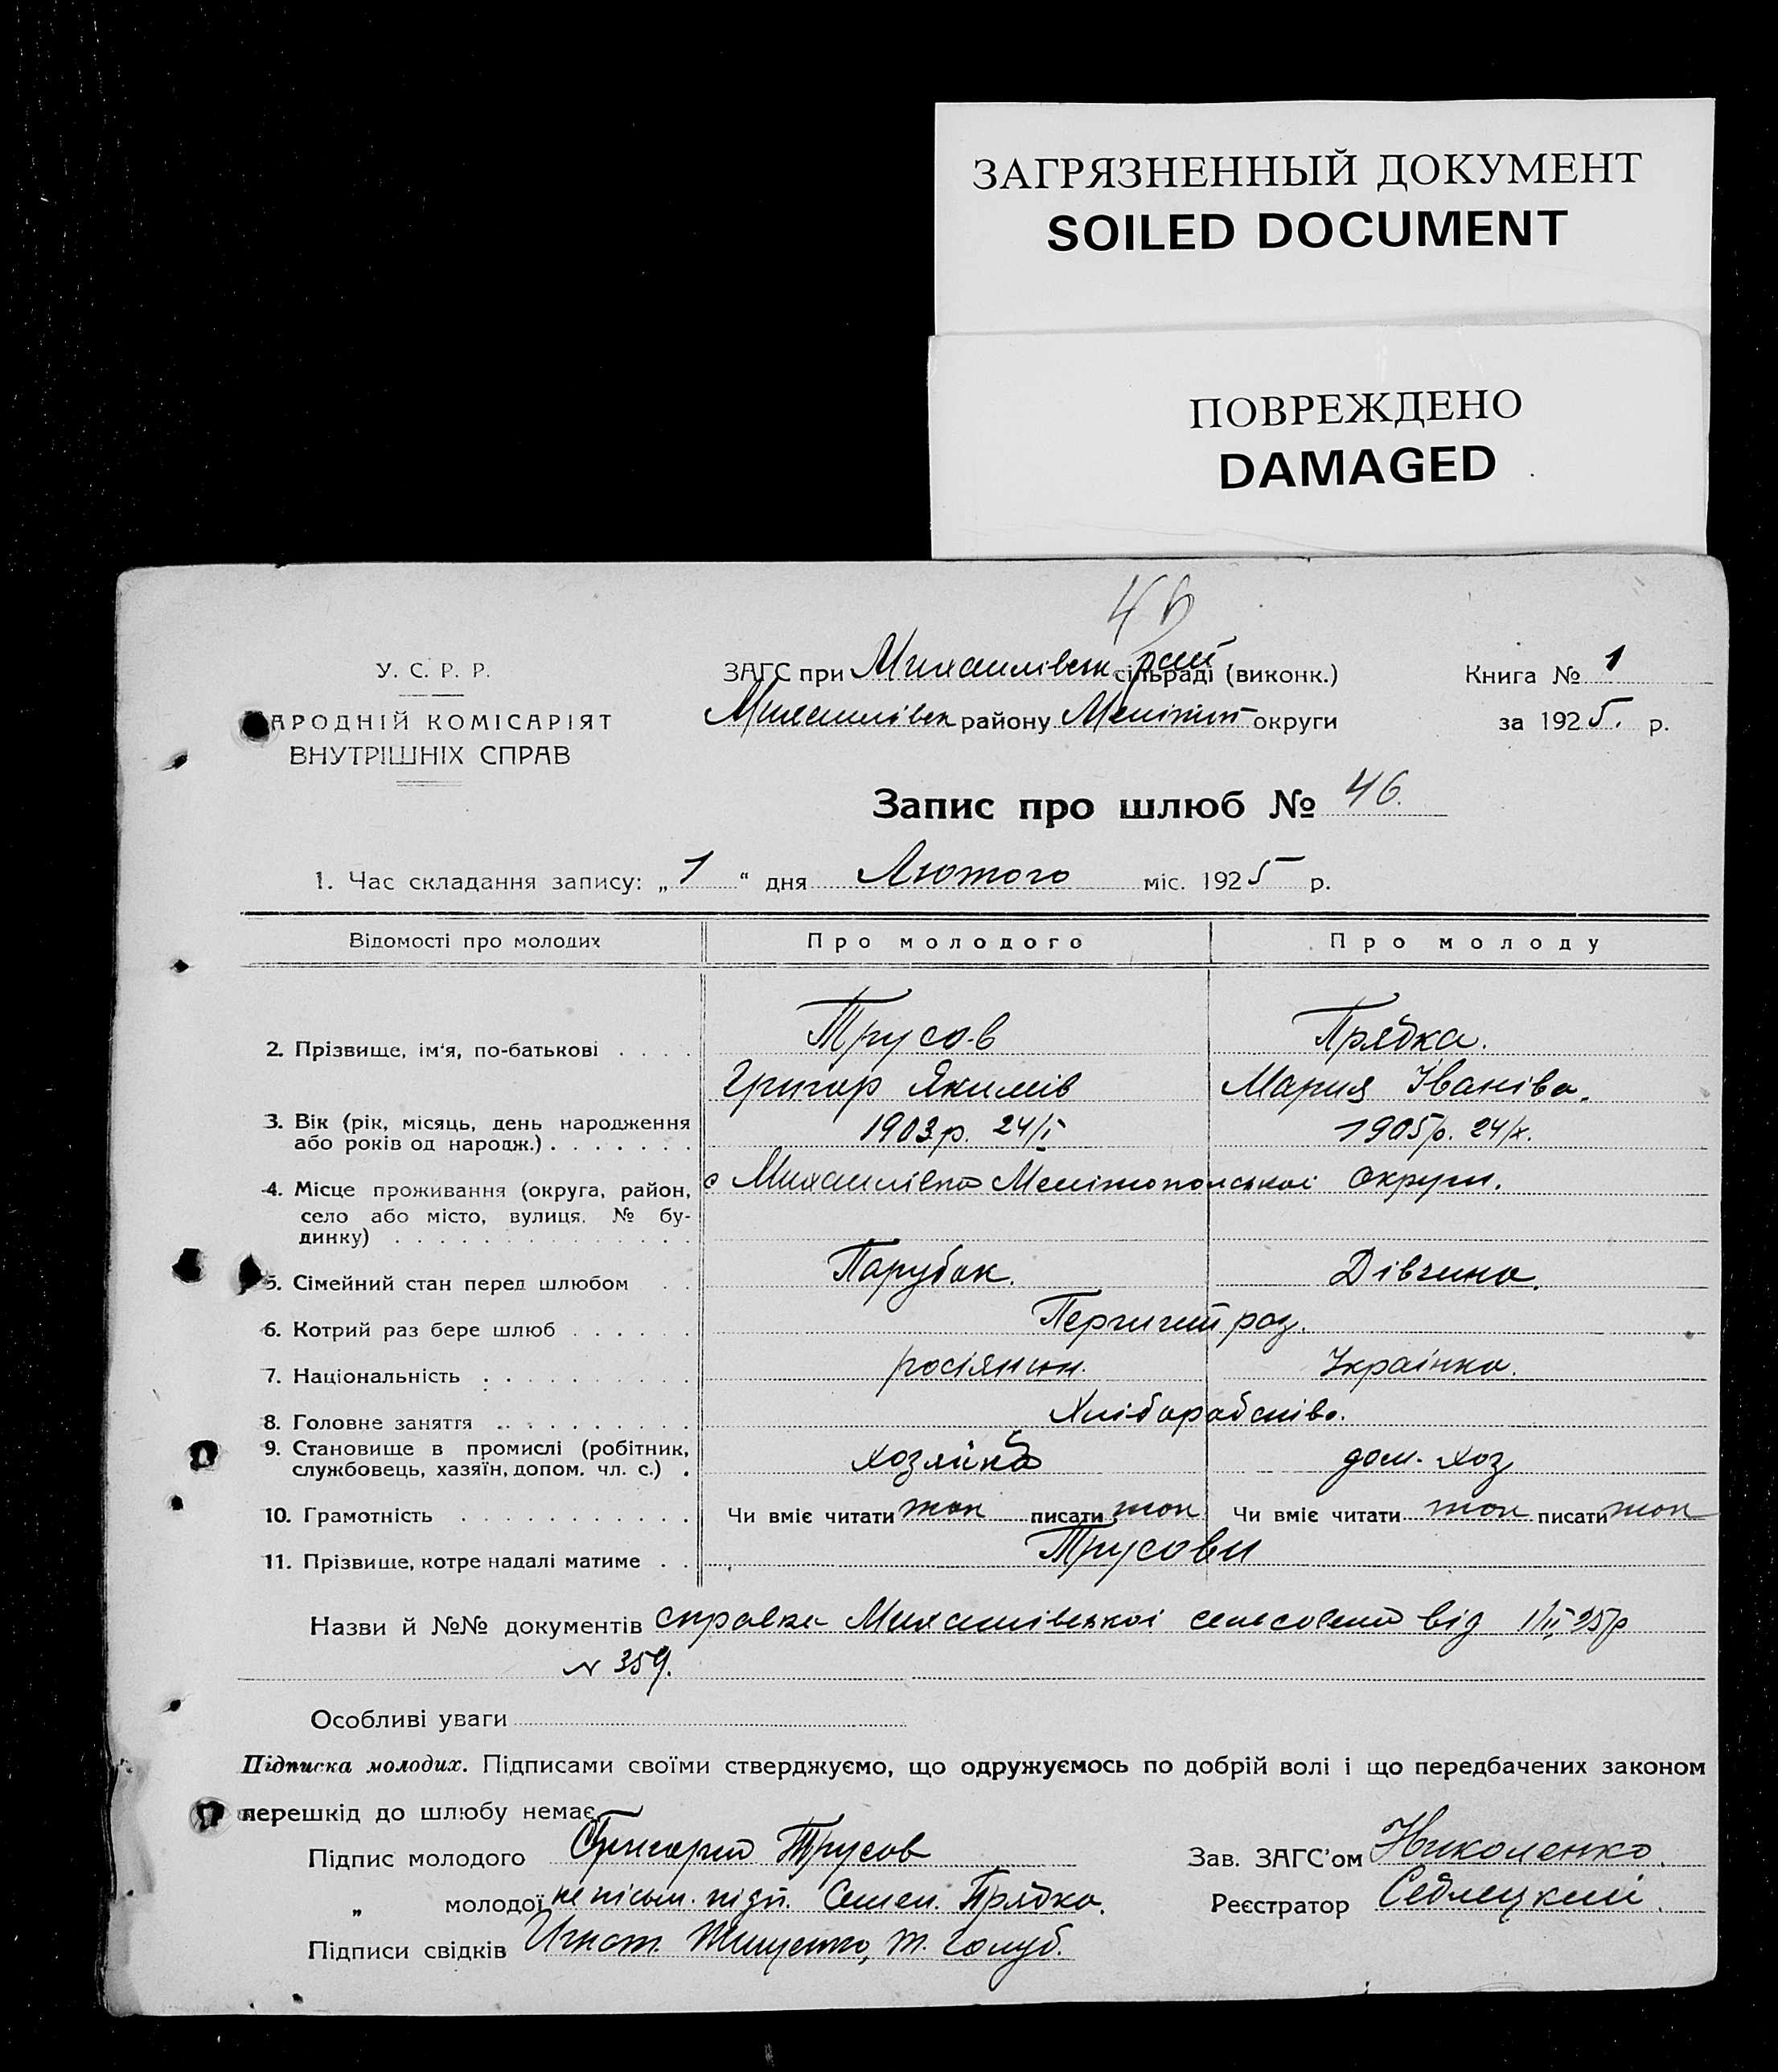 ЗАГРЯЗНЕННЫЙ ДОКУМЕНТ
SOILED DOCUMENT
ПОВРЕЖДЕНО
DAMAGED
46
У. С. Р. Р.
АРОДНІЙ КОМІСАРІЯТ
ВНУТРІШНІХ СПРАВ
ЗАГС при Михайлівськ. сільраді (виконк.)
Михайлівськ району Мелітоп округи
Книга № 1
за 1925. р.
Запис про шлюб № 46.
1. Час складання запису: „1" дня Лютого міс. 1925 р.
Відомості про молодих Про молодого Про молоду
2. Прізвище, ім'я, по-батькові . . . . Трусов Прядка.
Григор Якимів Мария Іваніва.
3. Вік (рік, місяць, день народження
або років од народж.) . . . . . . . 1903 р. 24/I 1905 р. 24/X.
4. Місце проживання (округа, район, с Михайлівка Мелітопольської округи.
село або місто, вулиця, № бу-
динку) . . . . . . . . . . . . . .
5. Сімейний стан перед шлюбом . . Парубок. Дівчина.
6. Котрий раз бере шлюб . . . . . . Перший раз.
7. Національність . . . . . . . . . . росіянин. Українка.
8. Головне заняття . . . . . . . . . Хліборобство.
9. Становище в промислі (робітник,
службовець, хазяїн, допом. чл. с.) . хозяїна дом. хоз
10. Грамотність . . . . . . . . . . . Чи вміє читати писати Чи вміє читати писати
11. Прізвище, котре надалі матиме . . Трусови
Назви й №№ документів справка Михайлівської сельсовета від 1/II 25 р
N 359.
Особливі уваги
Підписка молодих. Підписами своїми стверджуємо, що одружуємось по добрій волі і що передбачених законом
перешкід до шлюбу немає.
Підпис молодого Григорий Трусов Зав. ЗАГС'ом Николенко.
„ молодої не письм. підп. Семен. Прядка. Реєстратор Седлецкий.
Підписи свідків Игнат. Тищенко, т. Голуб.